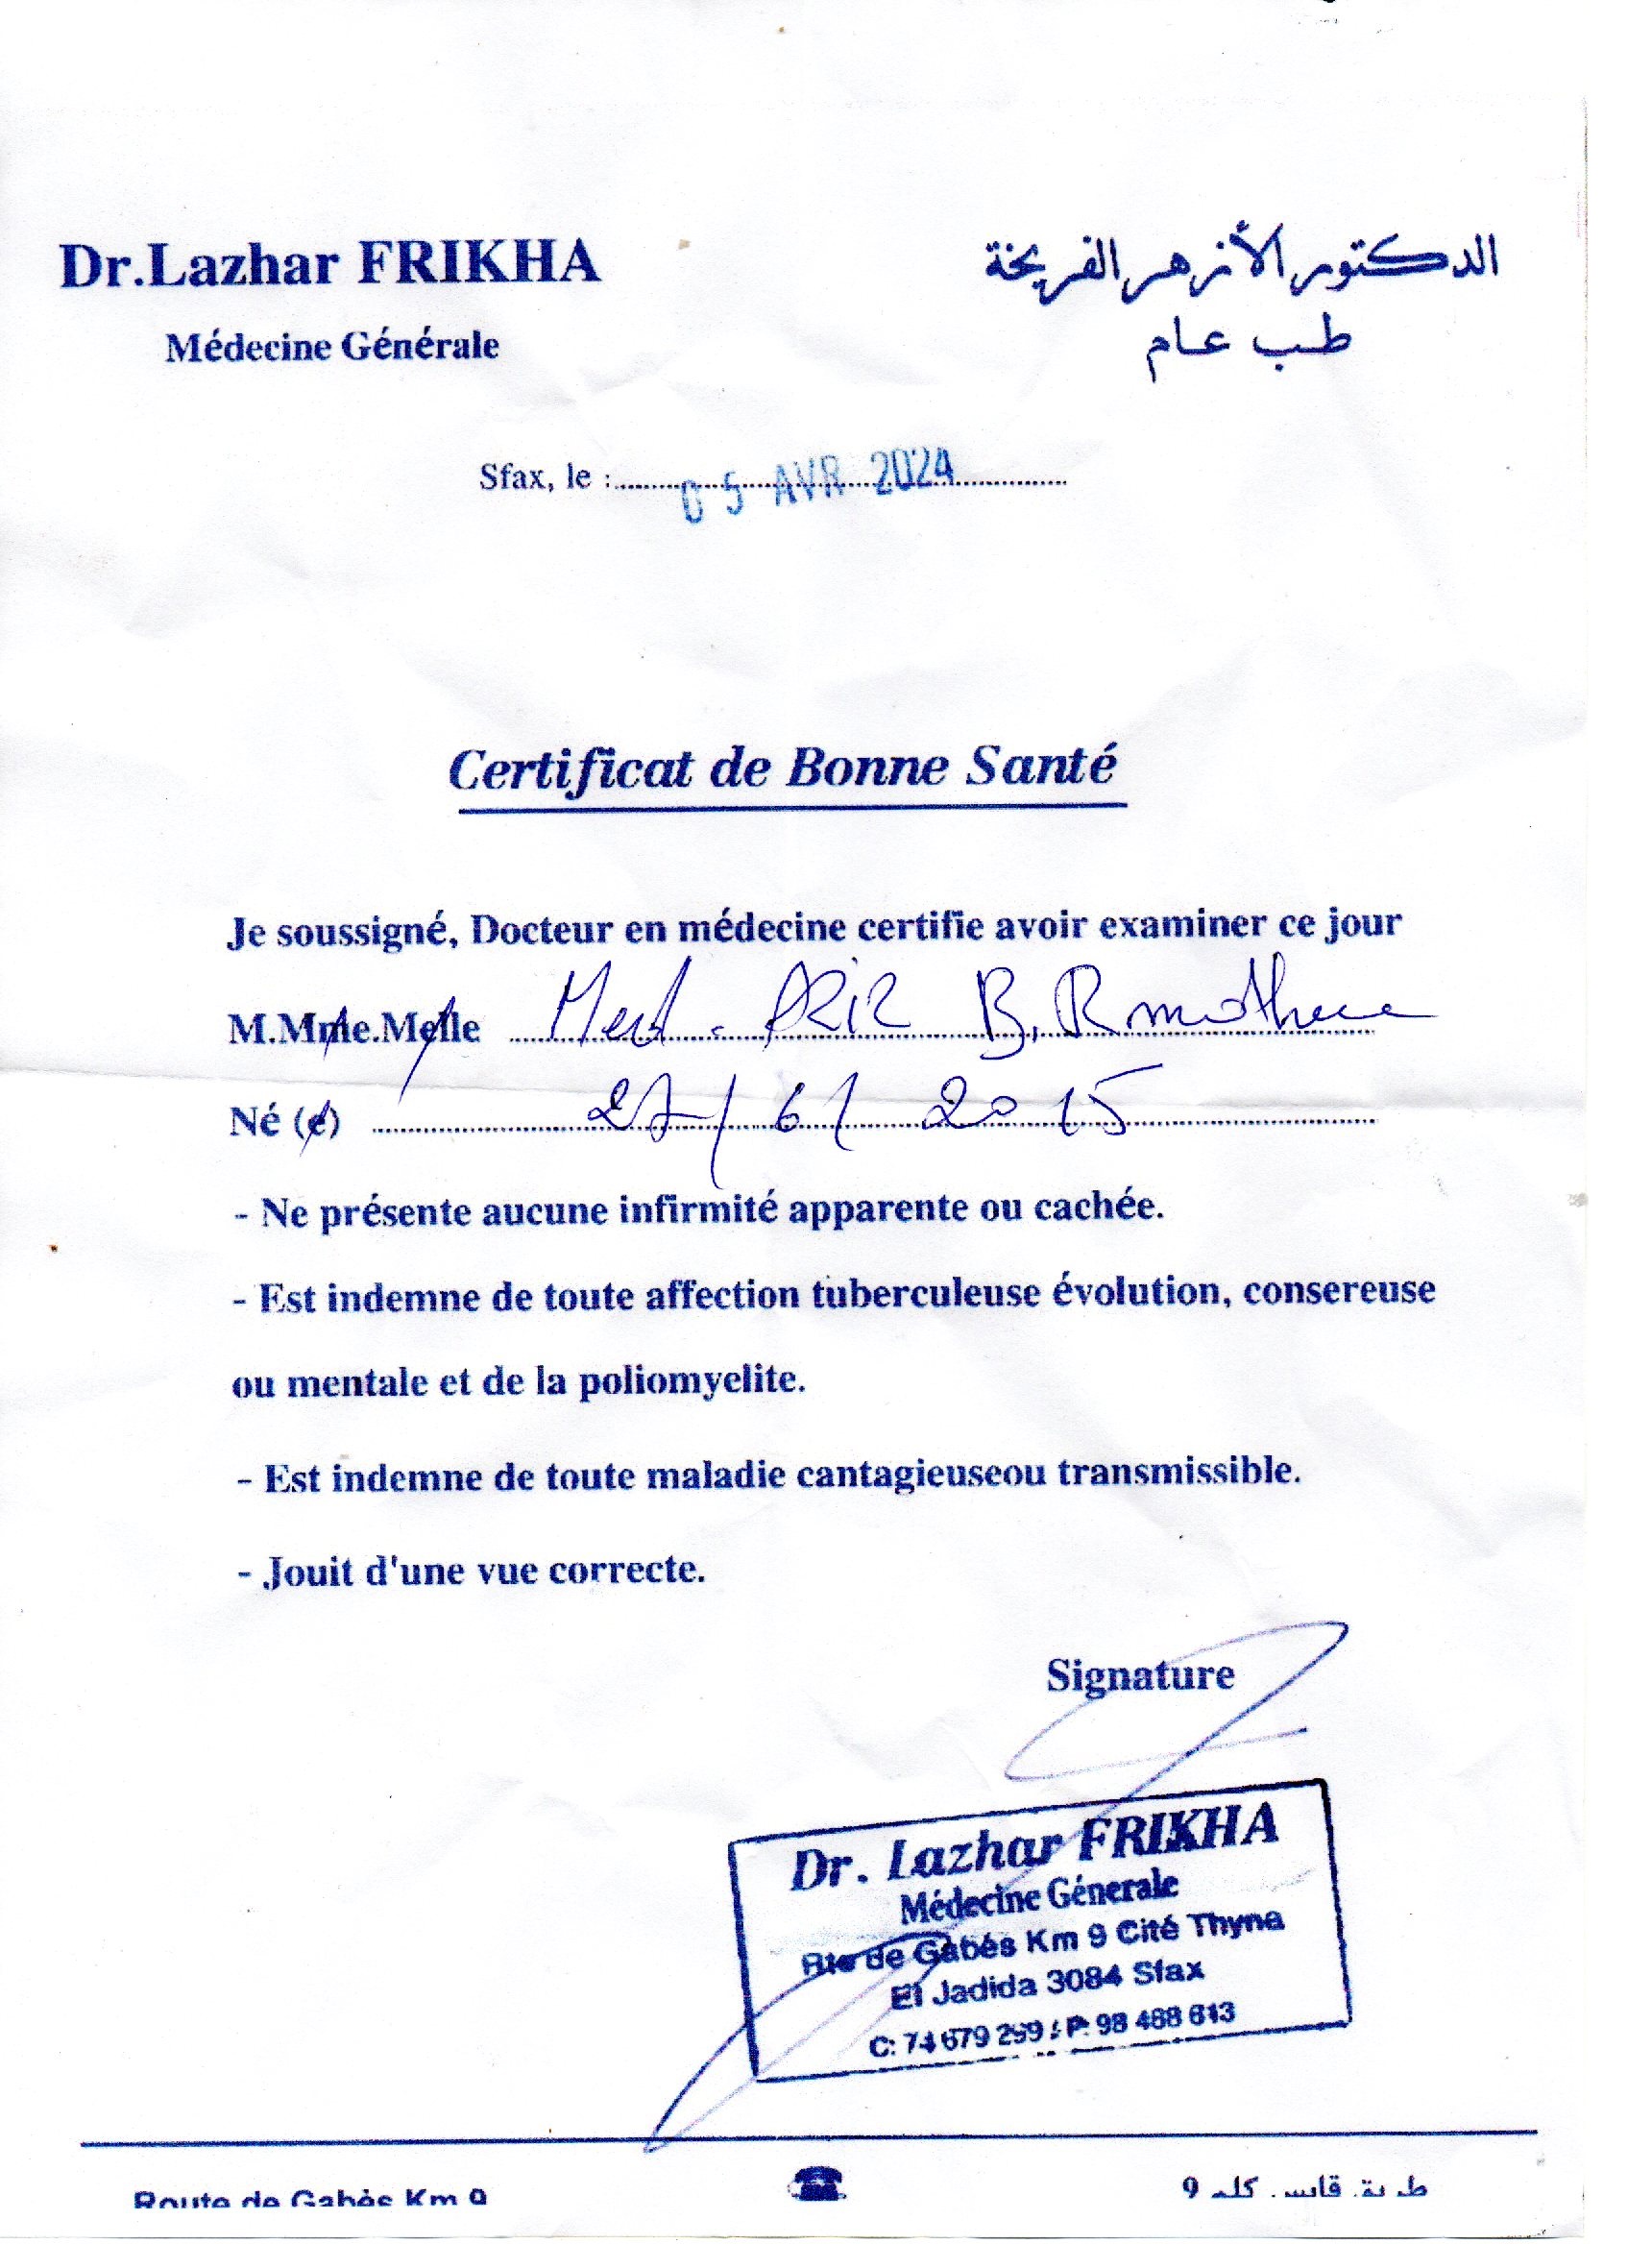 Dr.Lazhar FRIKHA
الدكتور الأزهر الفريخة
Médecine Générale
طب عام
Sfax, le : 05 AVR 2024
Certificat de Bonne Santé
Je soussigné, Docteur en médecine certifie avoir examiner ce jour
M.Mme.Melle Med. AZIZ B. Rmothene
Né (e) 27/6/2015
- Ne présente aucune infirmité apparente ou cachée.
- Est indemne de toute affection tuberculeuse évolution, consereuse
ou mentale et de la poliomyelite.
- Est indemne de toute maladie cantagieuseou transmissible.
- Jouit d'une vue correcte.
Signature
Dr. Lazhar FRIKHA
Médecine Génerale
Rte de Gabés Km 9 Cité Thyna
El Jadida 3084 Sfax
C: 74 679 299 / P: 98 488 613
Route de Gabès Km 9
طريق قابس كلم 9